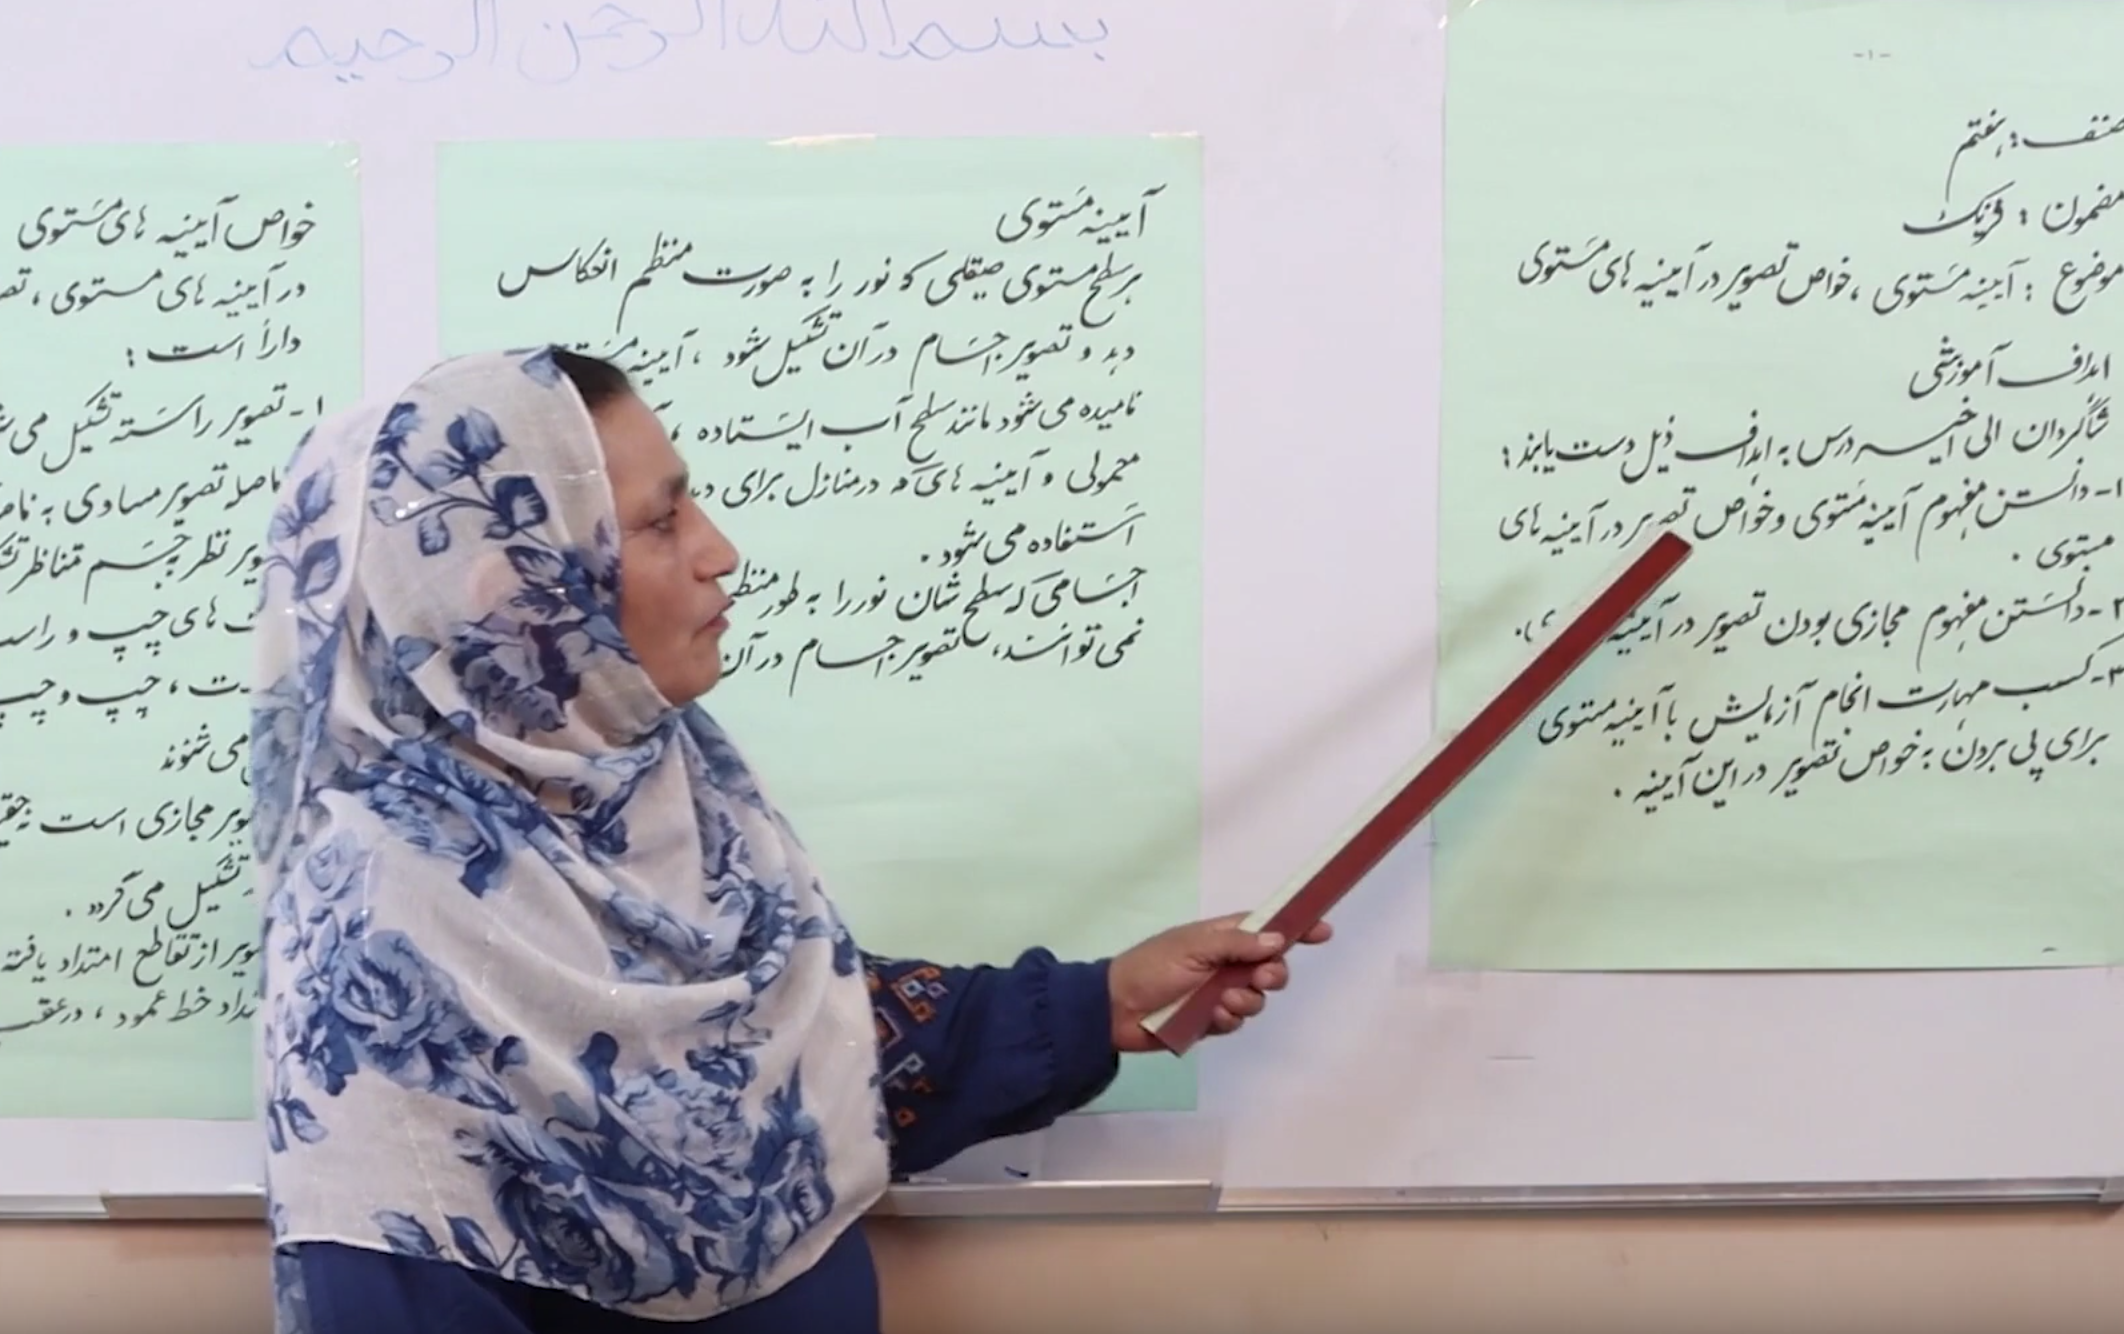 بسم الله الرحمن الرحیم
-۱-
صنف: هفتم
مضمون: فزیک
موضوع: آیینه مستوی، خواص تصویر در آیینه های مستوی
اهداف آموزشی
شاگردان الی اخیر درس به اهداف ذیل دست یابند:
۱- دانستن مفهوم آیینه مستوی و خواص تصویر در آیینه های
مستوی .
۲- دانستن مفهوم مجازی بودن تصویر در آیینه
۳- کسب مهارت انجام آزمایش با آیینه مستوی
برای پی بردن به خواص تصویر در این آیینه .
آیینه مستوی
هر سطح مستوی صیقلی که نور را به صورت منظم انعکاس
دهد و تصویر اجسام در آن تشکیل شود ، آیینه
نامیده می شود مانند سطح آب ایستاده ،
معمولی و آیینه های که در منازل برای
استفاده می شود .
اجسامی که سطح شان نور را به طور منظم
نمی توانند، تصویر اجسام در آن
خواص آیینه های مستوی
در آیینه های مستوی ،
دارا است :
۱- تصویر راسته تشکیل می
تصویر مساوی به
نظر به جسم متناظر
های چپ و
، چپ و چپ
می شنوند
مجازی است نه
تشکیل می گردد .
از تقاطع امتداد یافته
خط عمود ، در